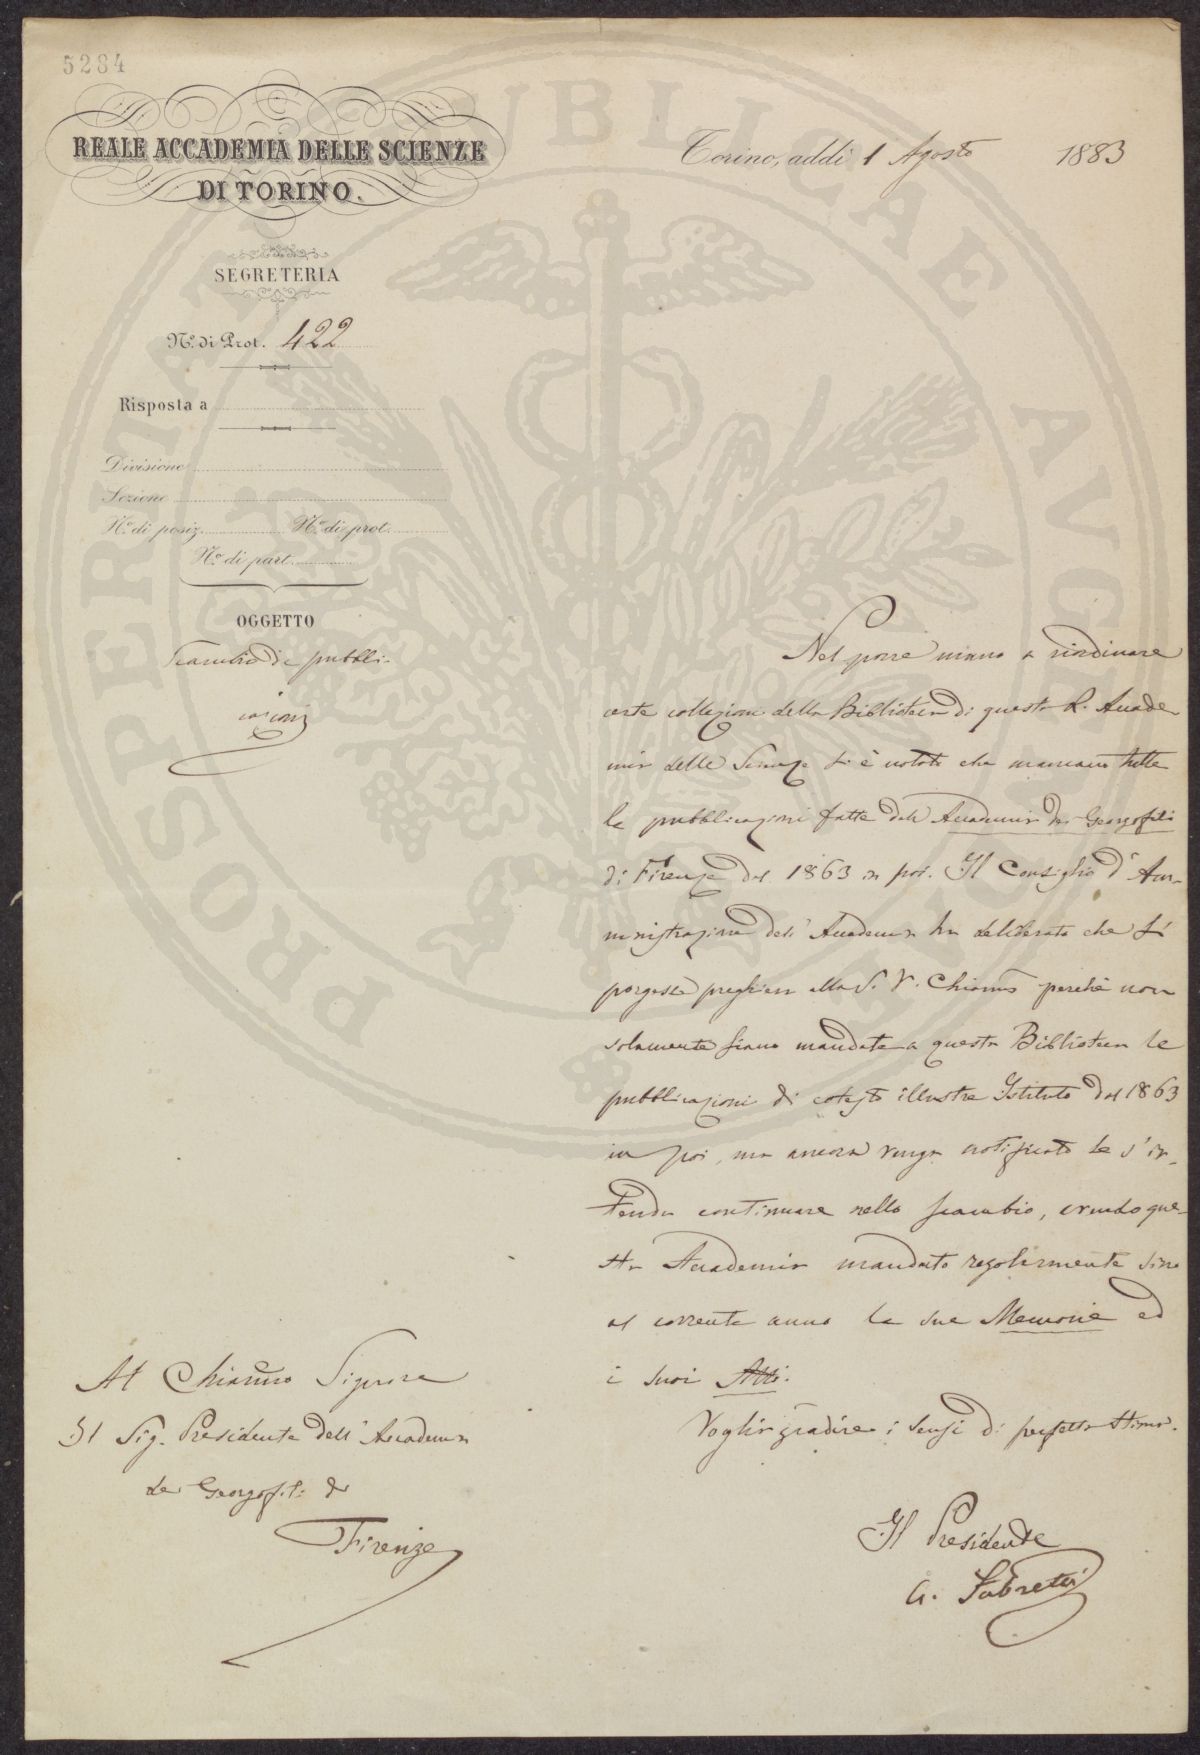 5284
REALE ACCADEMIA DELLE SCIENZE
DI TORINO.
Torino, addì 1 Agosto 1883
SEGRETERIA
N.º di Prot. 422
Risposta a
Divisione
Sezione
N.º di posiz. N.º di prot.
N.º di part.
OGGETTO
Scambio di pubbli-
cazioni
Nel porre mano a riordinare
certe collezioni della Biblioteca di questa R. Accade-
mia delle Scienze si è notato che mancano tutte
le pubblicazioni fatte dall'Accademia dei Georgofili
di Firenze dal 1863 in poi. Il Consiglio d'Am-
ministrazione dell'Accademia ha deliberato che si
porgesse preghiera alla S. V. Chiarma perchè non
solamente siano mandate a questa Biblioteca le
pubblicazioni di cotesto illustre Istituto dal 1863
in poi, ma ancora venga notificato se s'in-
tenda continuare nello scambio, avendo que-
sta Accademia mandato regolarmente sino
al corrente anno le sue Memorie ed
i suoi Atti.
Voglia gradire i sensi di perfetta stima.
Il Presidente
A. Fabretti
Al Chiarmo Signore
Il Sig. Presidente dell'Accademia
dei Georgofili di
Firenze
PROSPERITATI PUBLICAE AUGENDAE